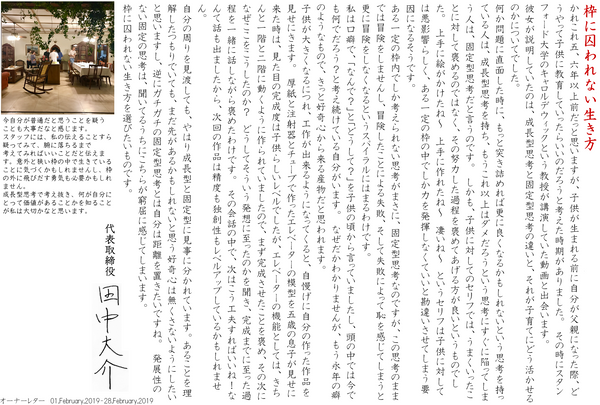 枠に囚われない生き方
かれこれ五、六年以前だと思いますが、子供が生まれる前に自分が父親になった際、ど
うやって子供に教育していったらいいのだろうと考えた時期がありました。その時にスタン
フォード大学のキャロルドウェックという教授が講演していた動画と出会います。
彼女が説明していたのは、成長型思考と固定型思考の違いと、それが子育てにどう活かせる
のかについてでした。
何か問題に直面した時に、もっと突き詰めれば更に良くなるかもしれないという思考を持っ
ている人は、成長型思考を持ち、もうこれ以上はダメだろうという思考にすぐに陥ってしま
う人は、固定型思考だと言うのです。しかも、子供に対してのセリフでは、うまくいったこ
とに対して褒めるのではなく、その努力した過程を褒めてあげる方が良いというものでし
た。上手に絵がかけたね〜　上手に作れたね〜　凄いね〜　というセリフは子供に対して
は悪影響らしく、ある一定の枠の中でしか力を発揮しなくていいと勘違いさせてしまう要
因になるそうです。
ある一定の枠内でしか考えられない思考がまさに、固定型思考なのですが、この思考のまま
では冒険をしませんし、冒険したことによる失敗、そして失敗によって恥を感じてしまうと
更に冒険をしなくなるというスパイラルにはまるわけです。
私は口癖で、「なんで？」と「どうして？」を子供の頃から言っていましたし、頭の中では今で
も何でだろう？と考え続けている自分がいます。なぜだかわかりませんが、もう永年の癖
のようなもので、きっと好奇心から来る産物だと思われます。
子供が大きくなるにつれ、工作が出来るようになってくると、自慢げに自分の作った作品を
見せにきます。　厚紙と注射器とチューブで作ったエレベーターの模型を五歳の息子が見せに
来た時は、見た目の完成度は子供らしいレベルでしたが、エレベーターの機能としては、きち
んと一階と二階に動くように作られていましたので、まず完成させたことを褒め、その次に
なぜここをこうしたのか？　どうしてそういう発想に至ったのかを聞き、完成までに至った過
程を一緒に話しながら褒めたわけです。　その会話の中で、次はこう工夫すればいいね！な
んて話も出ましたから、次回の作品は精度も独創性もレベルアップしているかもしれませ
ん。
自分の周りを見渡しても、やはり成長型と固定型に見事に分かれています。あることを理
解したつもりでいても、まだ先があるかもしれないと思う好奇心は無くさないようにしたい
と思いますし、逆にガチガチの固定型思考とは自分は距離を置きたいですね。　発展性の
ない固定の思考は、聞いてるうちにこちらが窮屈に感じてしまいます。
枠に囚われない生き方を選びたいものです。
今自分が普通だと思うことを疑う
ことも大事だなと感じます。
スタッフには、私の伝えることすら
疑ってみて、腑に落ちるまで
考えてみればいいへことだと伝えま
す。意外と狭い枠の中で生きている
ことに気づくかもしれませんし、枠
の外に飛びだす勇気も必要かもしれ
ません。
成長型思考で考え抜き、何が自分に
とって価値があることかを知ること
が私は大切かなと思います。
代表取締役
田中大介
オーナーレター　01,February,2019-28,February,2019